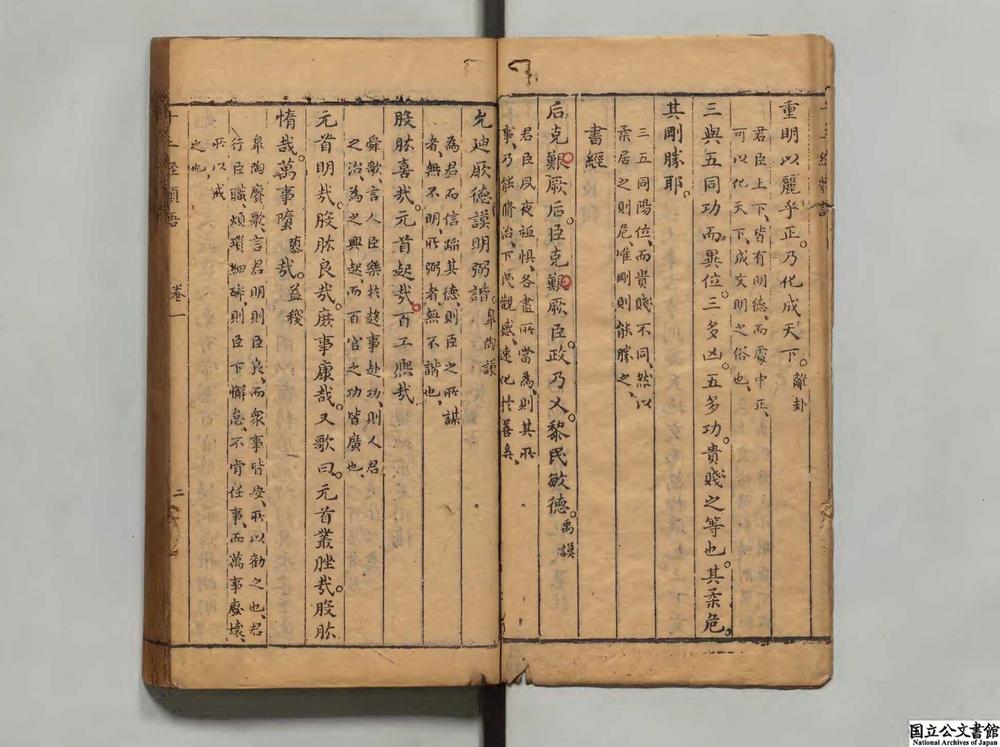 重明以麗乎正。乃化成天下。離卦
君臣上下、皆有明德、而處中正、
可以化天下、成文明之俗也、
三與五同功。而異位。三多凶。五多功。貴賤之等也。其柔危。
其剛勝耶。
三五同陽位、而貴賤不同、然以
柔居之則危、唯剛則能勝之、
書經
后克艱厥后。臣克艱厥臣。政乃乂。黎民敏德。禹謨
君臣夙夜祗懼、各盡所當為、則其所
事、乃能脩治、下民觀感、速化於善矣、
允迪厥德。謨明弼諧。皐陶謨
為君而信蹈其德、則臣之所謀
者、無不明、所弼者、無不諧也、
股肱喜哉。元首起哉。百工熙哉。
舜歌言人臣樂於趍事赴功、則人君
之治、為之興起、而百官之功皆廣也、
元首明哉。股肱良哉。庶事康哉。又歌曰。元首叢脞哉。股肱
惰哉。萬事墮哉。益稷
皐陶賡歌、言君明、則臣良、而衆事皆安、所以勸之也、君
行臣職、煩瑣細碎、則臣下懈怠、不肯任事、而萬事廢壞、
所以戒
之也、
卷一
二
国立公文書館
National Archives of Japan